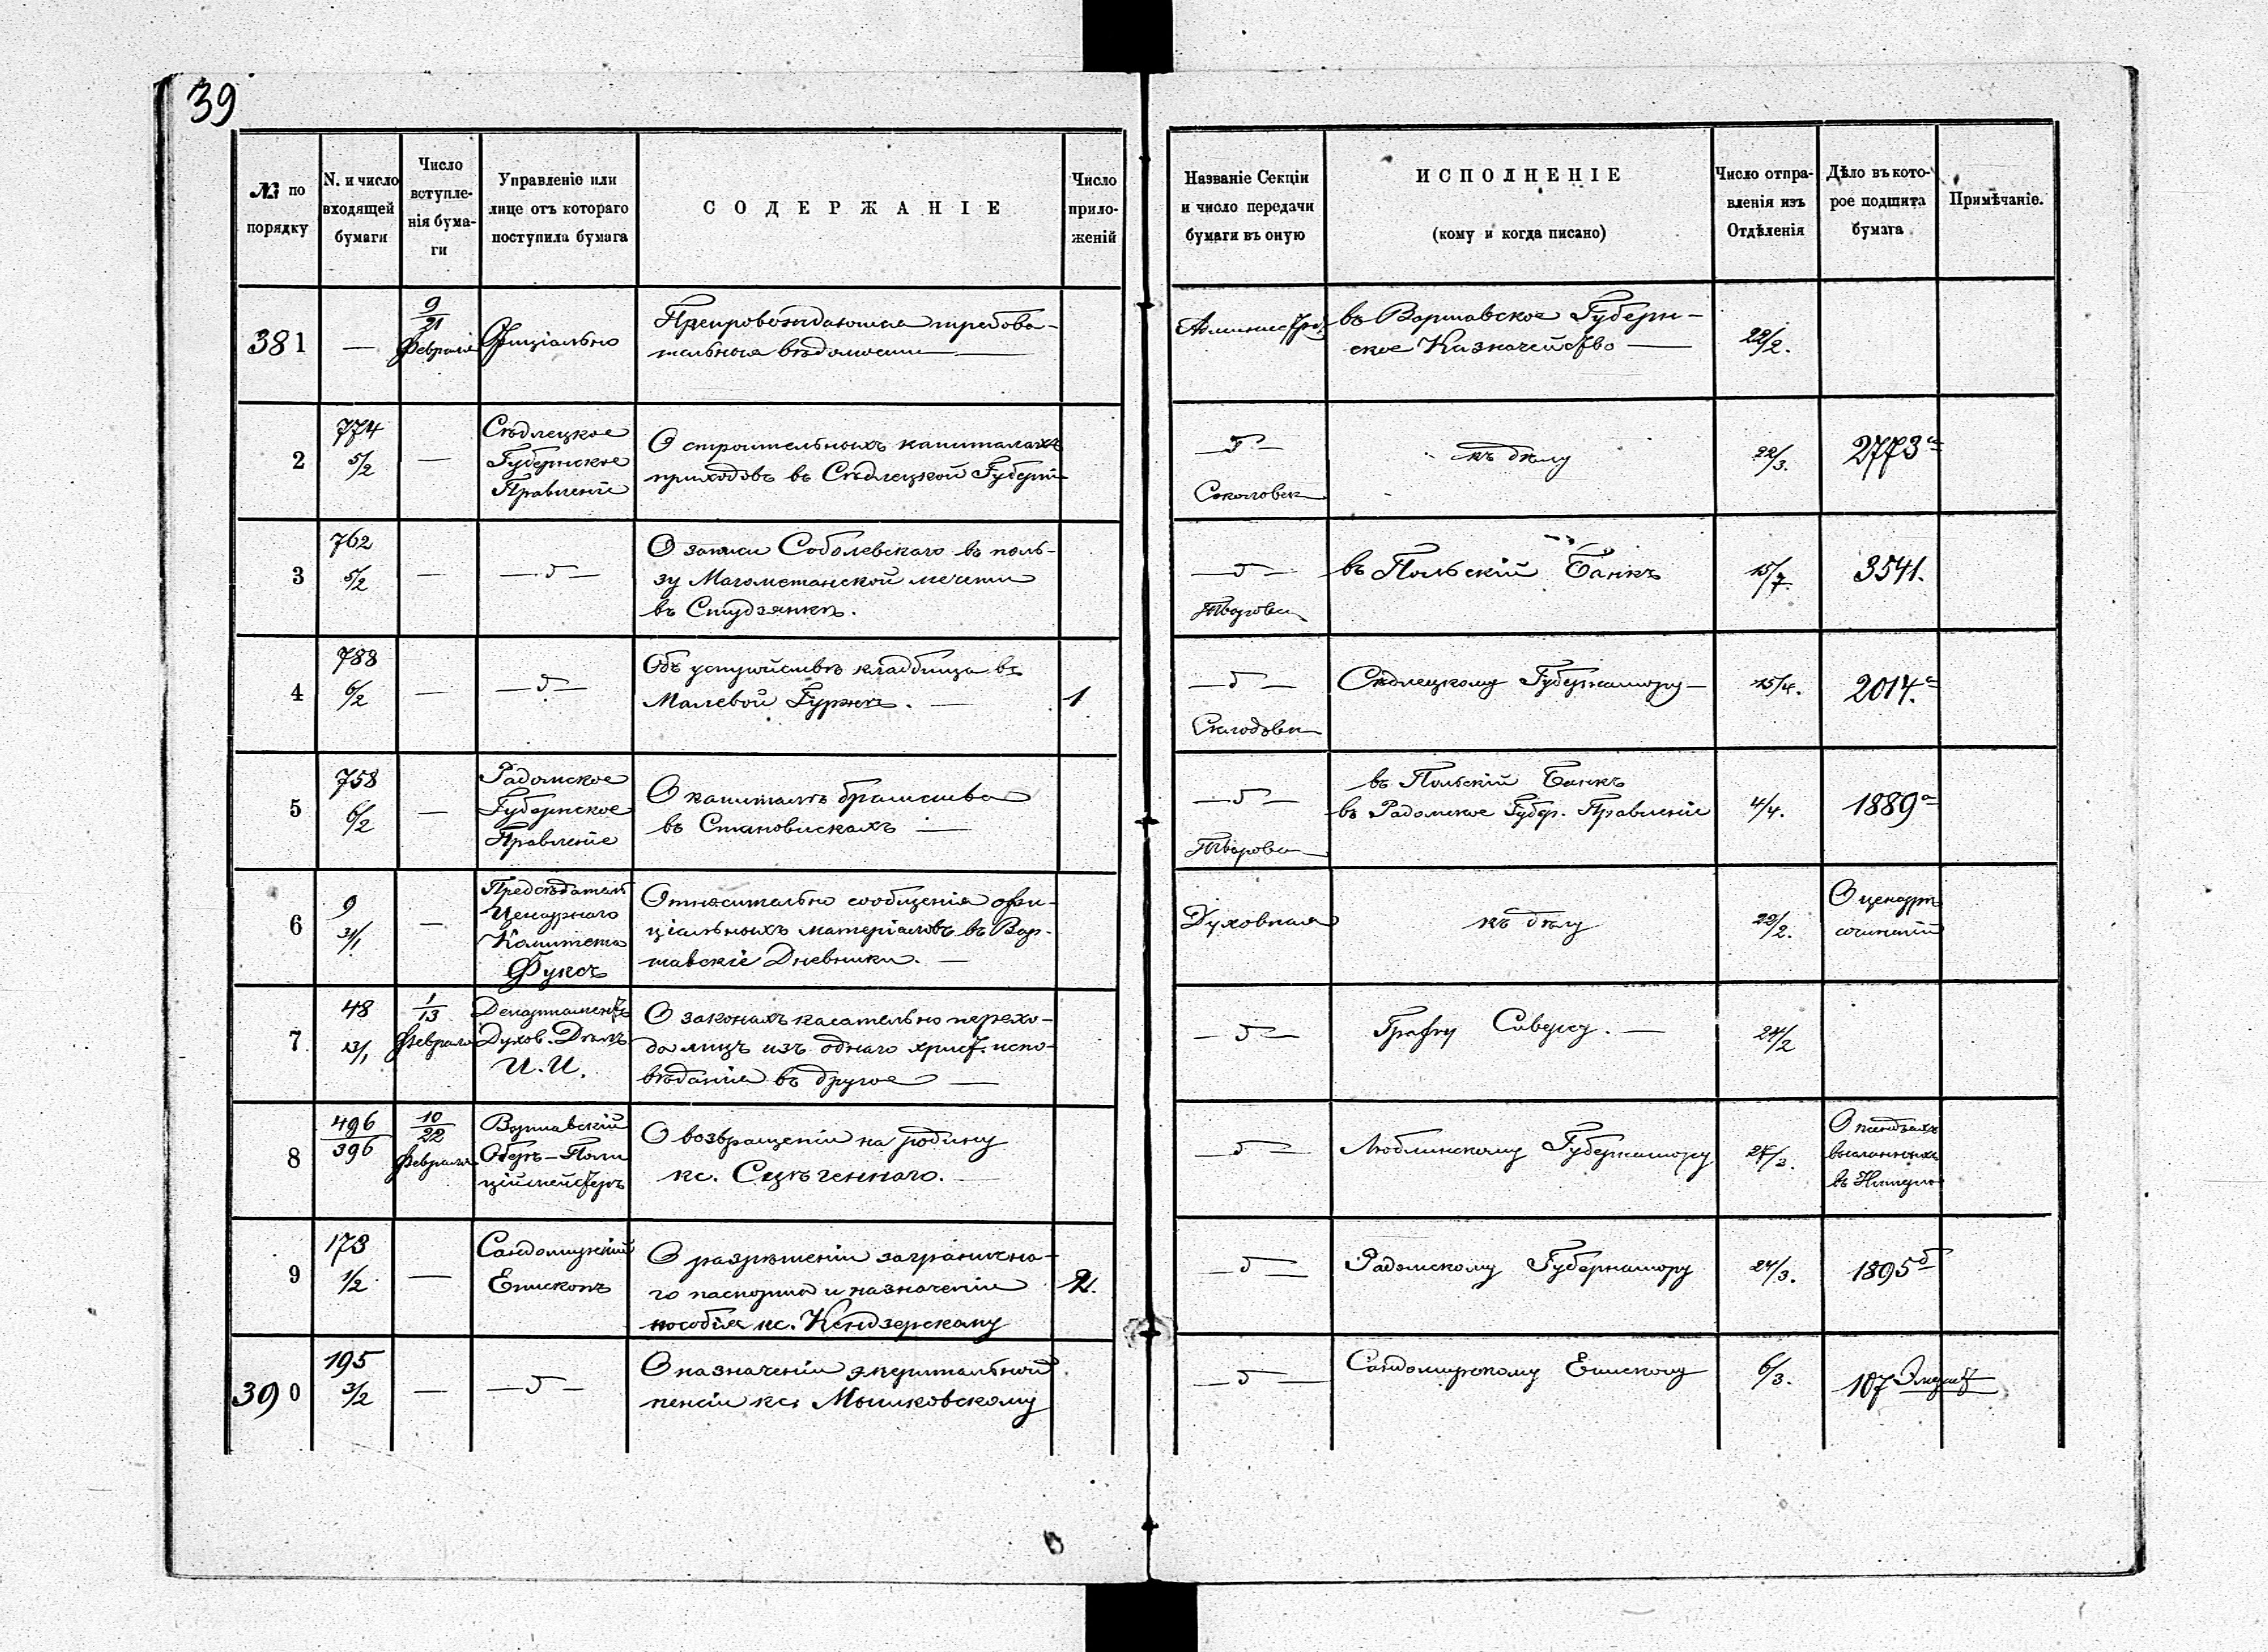 39
№ по порядку
N. и число входящей бумаги
Число вступле-нія бума-ги
Управленіе или лице отъ котораго поступила бумага
СОДЕРЖАНІЕ
Число прило-женій
Названіе Секціи и число передачи бумаги въ оную
ИСПОЛНЕНІЕ
(кому и когда писано)
Число отпра-вленія изъ Отдѣленія
Дѣло въ кото-рое подшита бумага
Примѣчаніе.
381
—
9/21 Февраля
Офиціально
Препровождаются требова-
тельныя вѣдомости —
въ Варшавское Губерн-
ское Казначейство —
22/2.
2
774
5/2
—
Сѣдлецкое
Губернское
Правленіе
О строительныхъ капиталахъ
приходовъ въ Сѣдлецкой Губерні
къ дѣлу
22/3.
2773а
3
762
5/2
—
О записи Соболевскаго въ поль-
зу Магометанской мечети
въ Студзянкѣ.
въ Польскій Банкъ
15/7.
3541.
4
788
6/2
—
Объ устройствѣ кладбища въ
Малевой Гурѣ. —
1
Сѣдлецкому Губернатору —
15/4.
2014.а
5
758
6/2
—
Радомское
Губернское
Правленіе
О капиталѣ братства
въ Становискахъ —
въ Польскій Банкъ
въ Радомское Губер. Правленіе
4/4.
1889а
6
9
31/1.
—
Предсѣдатель
Цензурнаго
Комитета
Фуксъ
Относительно сообщенія офи-
ціальныхъ матеріаловъ въ Вар-
шавскіе Дневники. —
Духовная
къ дѣлу
29/2.
О цензурѣ
сочиненій
7
48
23/1
1/13 Февраля
Департаментъ
Духов. Дѣлъ
И. И.
О законахъ касательно перехо-
да лицъ изъ однаго христ. испо-
вѣданія въ другое —
Графу Сиверсу. —
24/2
8
496
396
10/22 Февраля
Варшавскій
Оберъ-Поли
ціймейстеръ
О возвращеніи на родину
кс.
Люблинскому Губернатору
О ксендзахъ
высланныхъ
въ Имперію
9
173
1/2
—
Сандомирскій
Епископъ
О разрѣшеніи заграничнa-
го паспорта и назначеніи
пособія кс. Кендзерскому
2.
Радомскому Губернатору
24/3.
1895б
390
195
3/2
—
О назначеніи эмеритальной
пенсіи кс. Мышковскому
Сандомирскому Епископу
6/3.
107 Эмерит